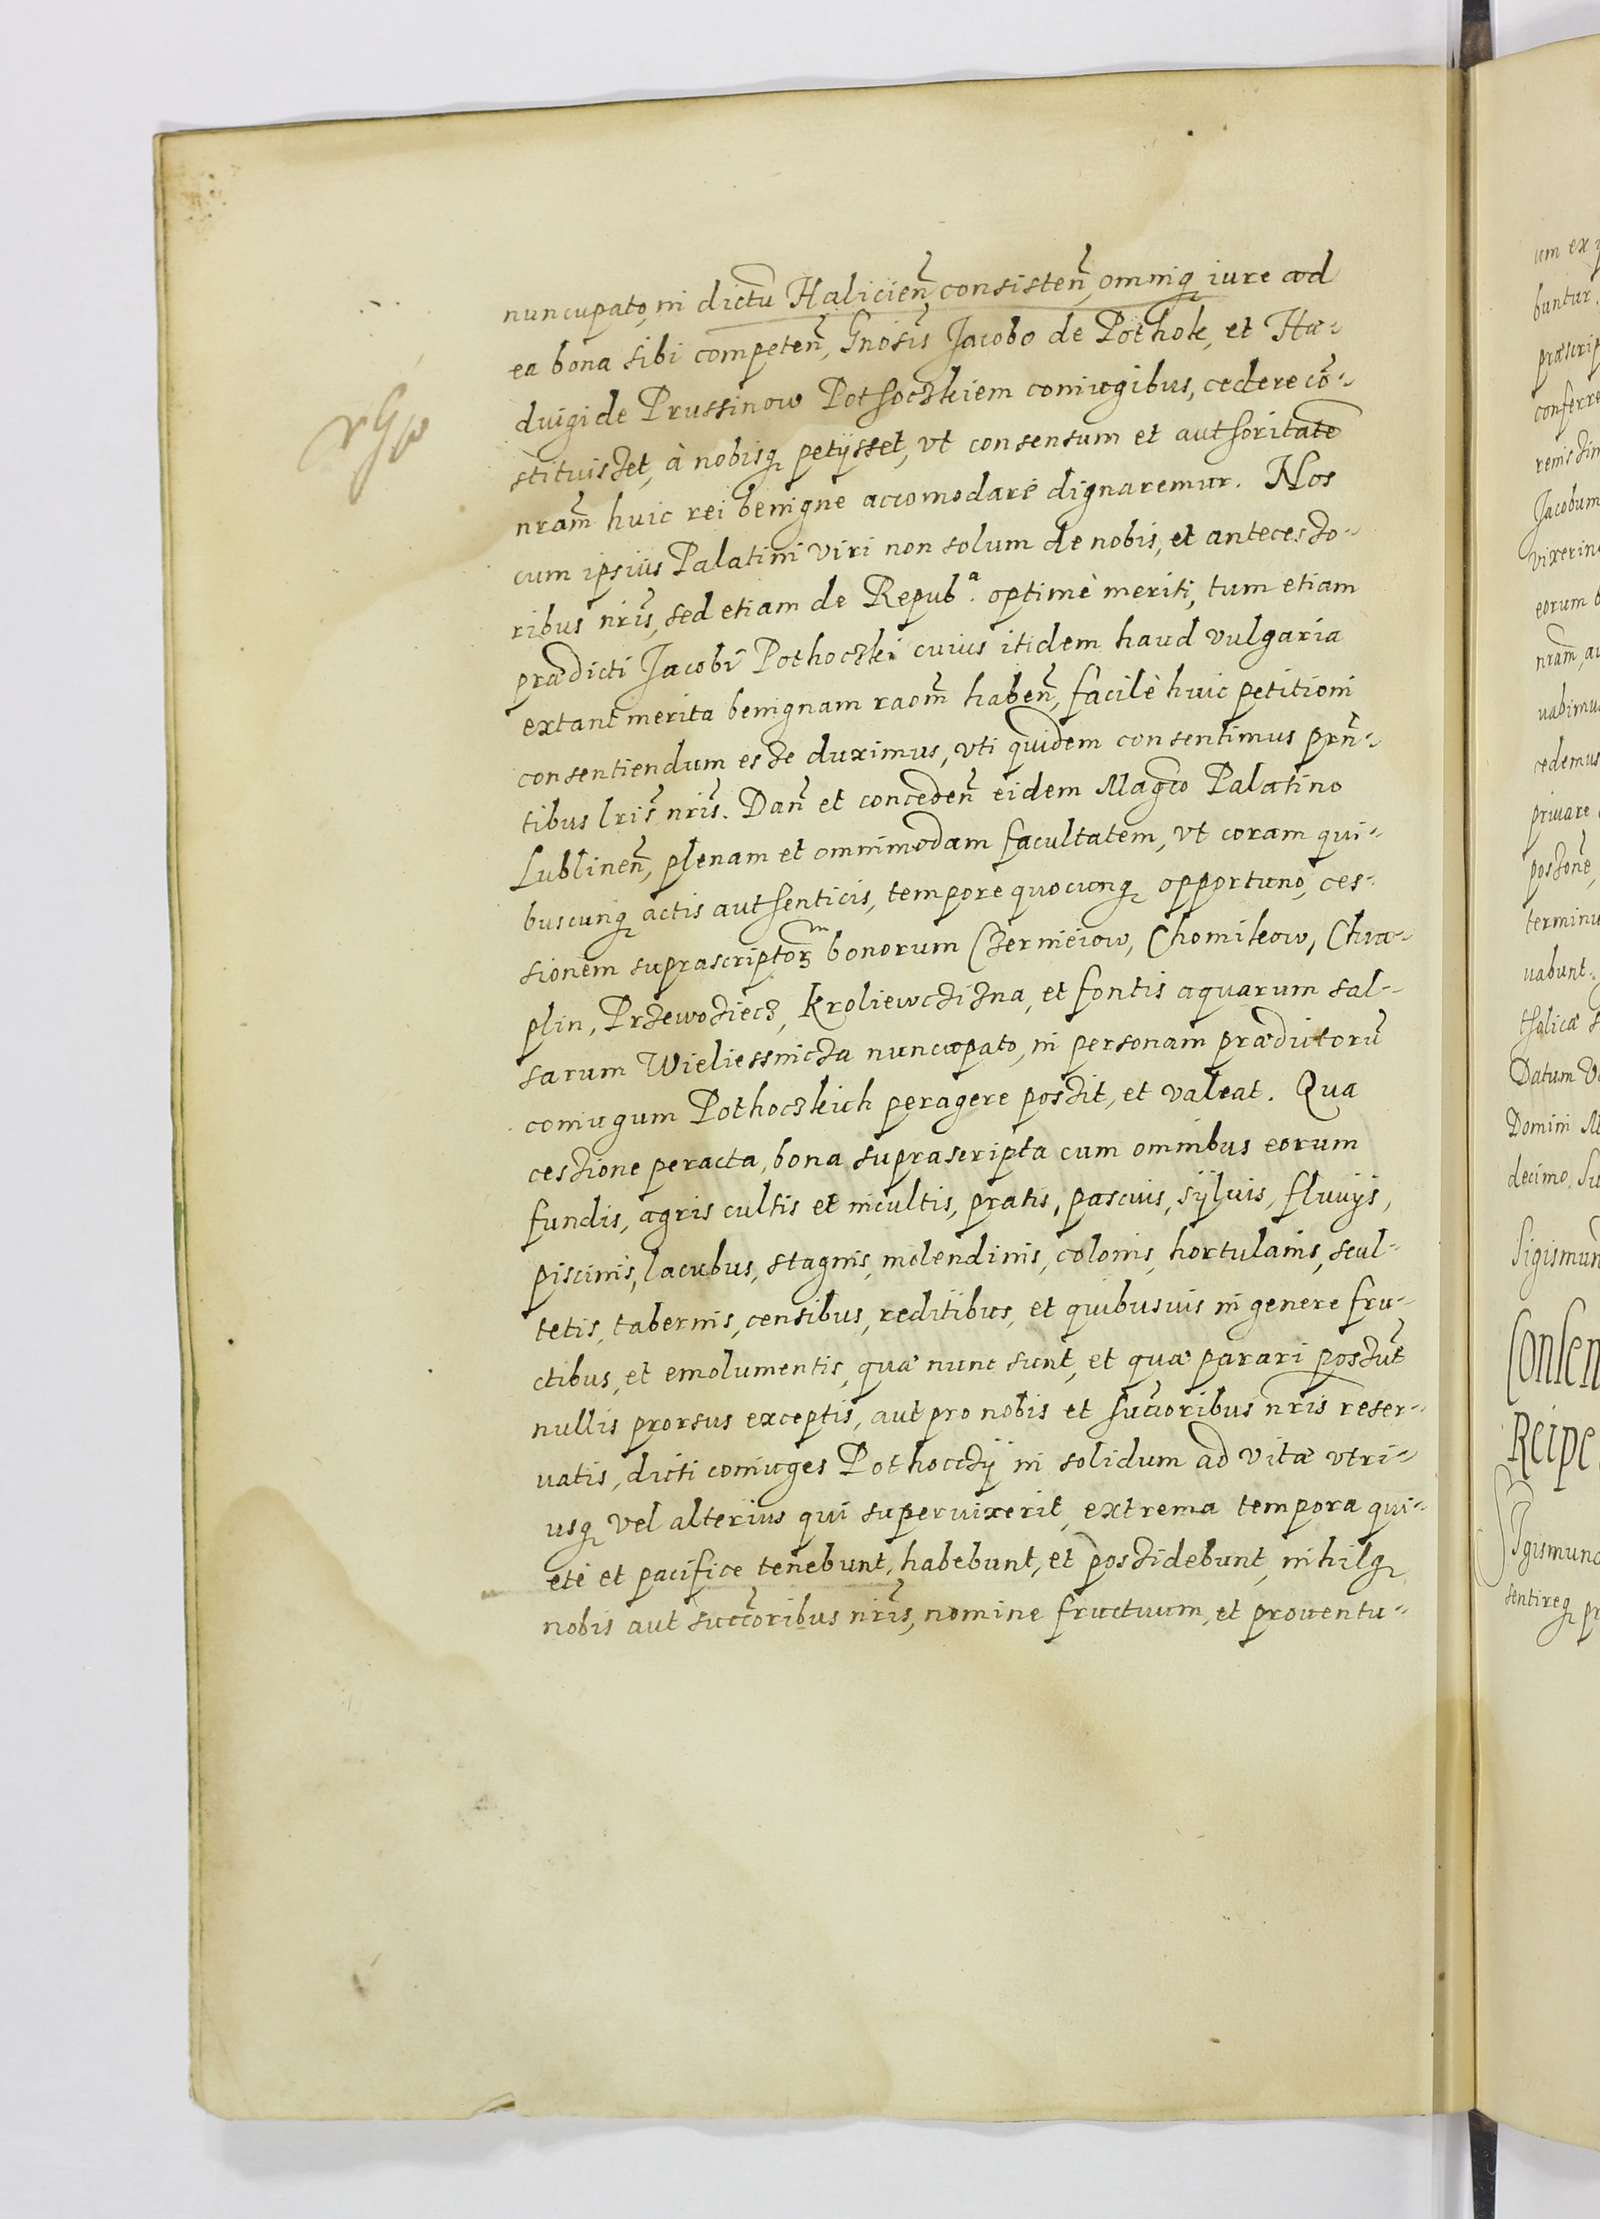 nuncupato, in dictũ Halicieñ consisteñ, omniq iure ad
ea bona sibi competeñ, Gnosis Jacobo de Pothok, et Ha-
duigi de Prussinow Pothoczkiem coniugibus, cedere cõ-
stituisset, à nobisq petijsset, vt consensum et authoritate
nram̃ huic rei benigne accomodare dignaremur. Nos
cum ipsius Palatini viri non solum de nobis, et antecesso-
ribus nris̃, sed etiam de Repub.ᵃ optimè meriti, tum etiam
prædicti Jacobi Pothoczki cuius itidem haud vulgaria
extant merita benignam raom̃ habeñ, facilè huic petitioni
consentiendum esse duximus, vti quidem consentimus prñ-
tibus lris̃ nris̃. Dañ et concedeñ eidem Magco Palatino
Lublineñ, plenam et omnimodam facultatem, vt coram qui-
buscunq actis authenticis, tempore quocunq opportuno, ces-
sionem suprascriptoꝝ bonorum Czernieiow, Chomikow, Chra-
plin, Przewoziecz, Kroliewczizna, et fontis aquarum sal-
sarum Wieliessnicza nuncupato, in personam prædictorũ
coniugum Pothoczkich peragere possit, et valeat. Qua
cessione peracta, bona suprascripta cum omnibus eorum
fundis, agris cultis et incultis, pratis, pascuis, sÿluis, fluuijs,
piscinis, lacubus, stagnis, molendinis, colonis, hortulanis, scul-
tetis, tabernis, censibus, reditibus, et quibusuis in genere fru-
ctibus, et emolumentis, quæ nunc sunt, et quæ parari possũt
nullis prorsus exceptis, aut pro nobis et succ̃oribus nris reser-
uatis, dicti coniuges Pothocczÿ in solidum ad vitæ vtri-
usq vel alterius qui superuixerit, extrema tempora qui-
ete et pacifice tenebunt, habebunt, et possidebunt, nihilq
nobis aut succ̃oribus nris̃, nomine fructuum, et prouentu-
um ex
buntur.
præscrip
conferre
Jacobum
vixerin
eorum
nram̃, au
uabimu
cedemus
priuare
possone
terminu
uabunt.
tholicæ
Datum
Domini
decimo. Su
Sigismun
Consen
Reipe
Sigismund
sentireq pr